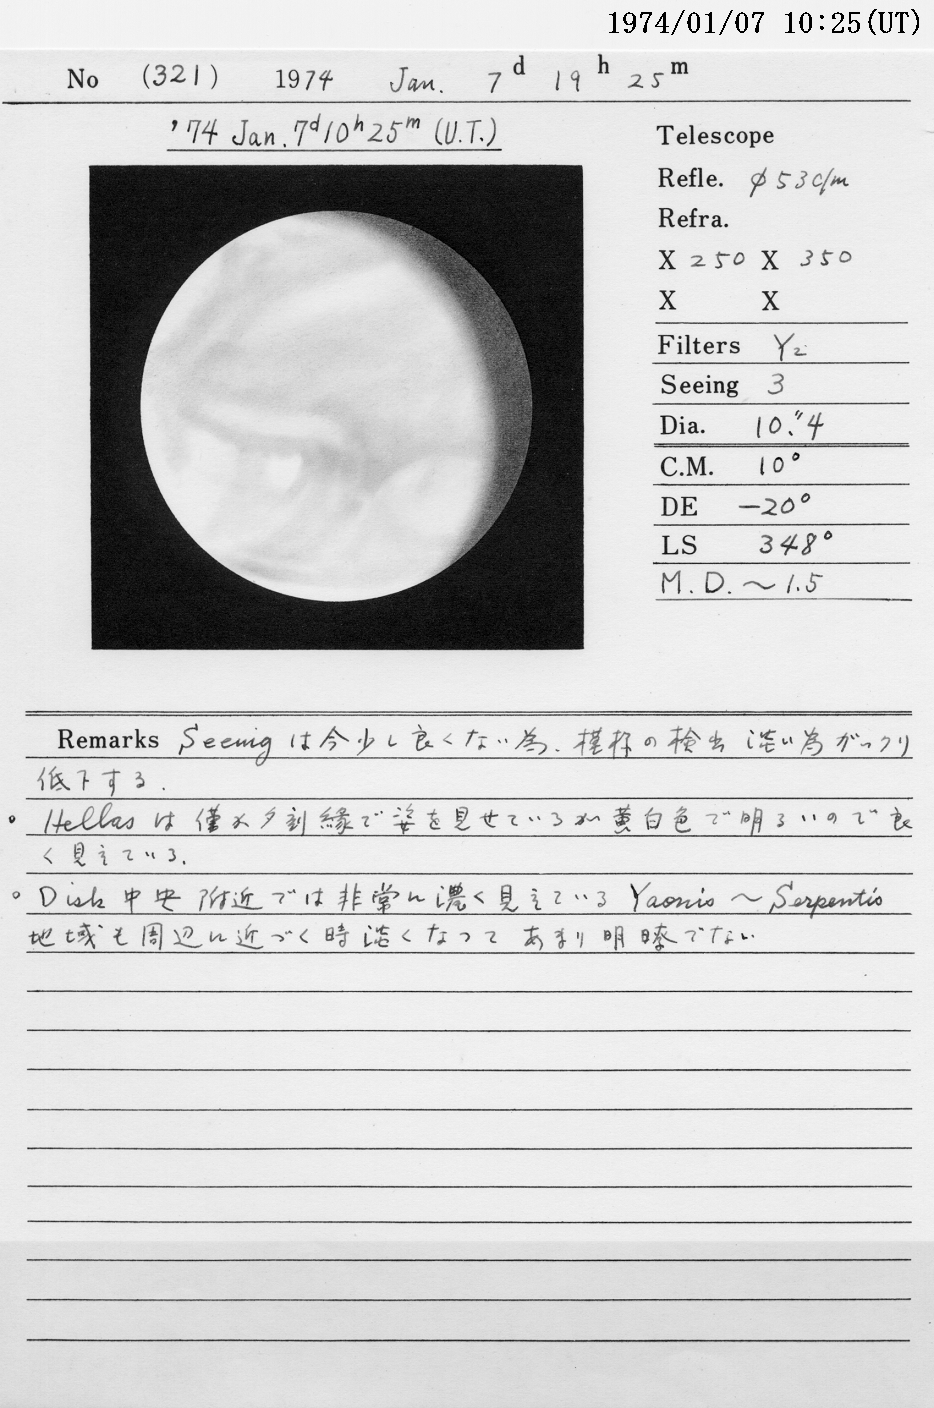 1974/01/07 10:25(UT)
No (321) 1974 Jan. 7d 19h 25m
'74 Jan. 7d10h25m (U.T.)
Telescope
Refle. φ53c/m
Refra.
X 250 X 350
X X
Filters Y2
Seeing 3
Dia. 10."4
C.M. 10°
DE -20°
LS 348°
M.D. ~ 1.5
Remarks Seeingは今少し良くない為、模様の検出 淡い為がックリ
低下する.
• Hellasは僅かタ刻縁で姿を見せているが黄白色で明るいので良
く見えている.
• Disk中央附近では非常に濃く見えている Yaonis ~ Serpentis
地域も周辺に近づく時淡くなって あまり明瞭でない